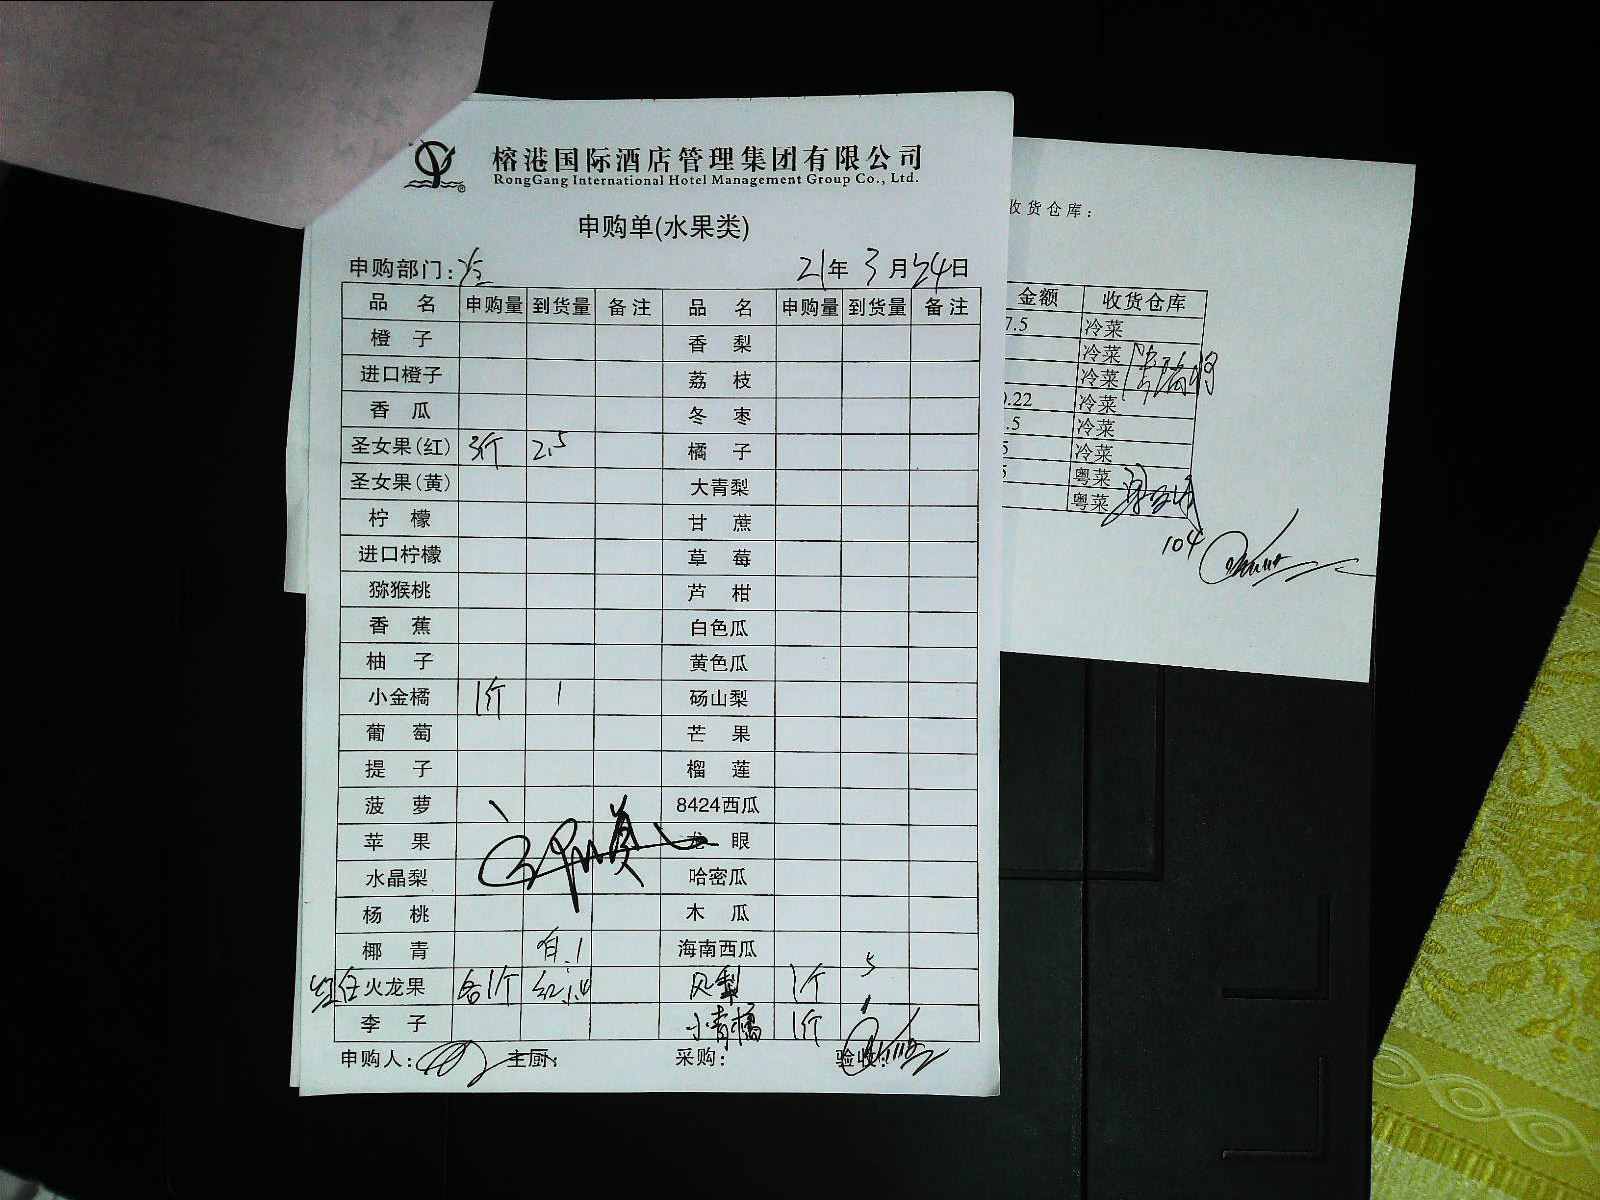 榕港国际酒店管理集团有限公司
RongGang International Hotel Management Group Co., Ltd.
申购单(水果类)
申购部门: 21年3月24日
品 名 申购量 到货量 备注 品 名 申购量 到货量 备注
橙 子 香 梨
进口橙子 荔 枝
香 瓜 冬 枣
圣女果(红) 3斤 2.5 橘 子
圣女果(黄) 大青梨
柠 檬 甘 蔗
进口柠檬 草 莓
猕猴桃 芦 柑
香 蕉 白色瓜
柚 子 黄色瓜
小金橘 1斤 1 砀山梨
葡 萄 芒 果
提 子 榴 莲
菠 萝 8424西瓜
苹 果 龙 眼
水晶梨 哈密瓜
杨 桃 木 瓜
椰 青 白:1 海南西瓜
红白火龙果 各1个 红:1.4 贝梨 1个 5
李 子 小青橘 1斤 1
申购人: 主厨: 采购: 验收:
收货仓库:
金额 收货仓库
7.5 冷菜
冷菜
冷菜
.22 冷菜
.5 冷菜
5 冷菜
5 粤菜
粤菜
104